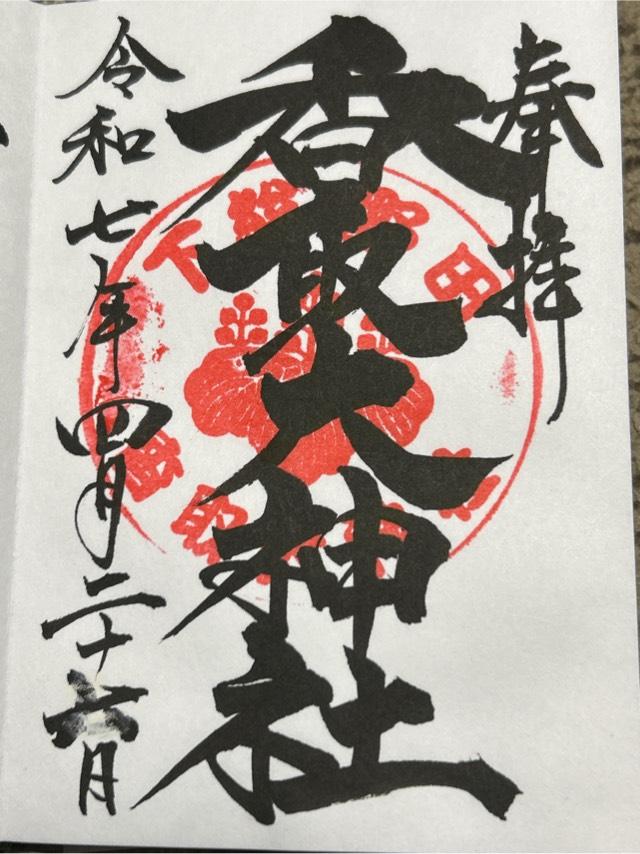 奉拝
香取大神社
令和七年四月二十六日